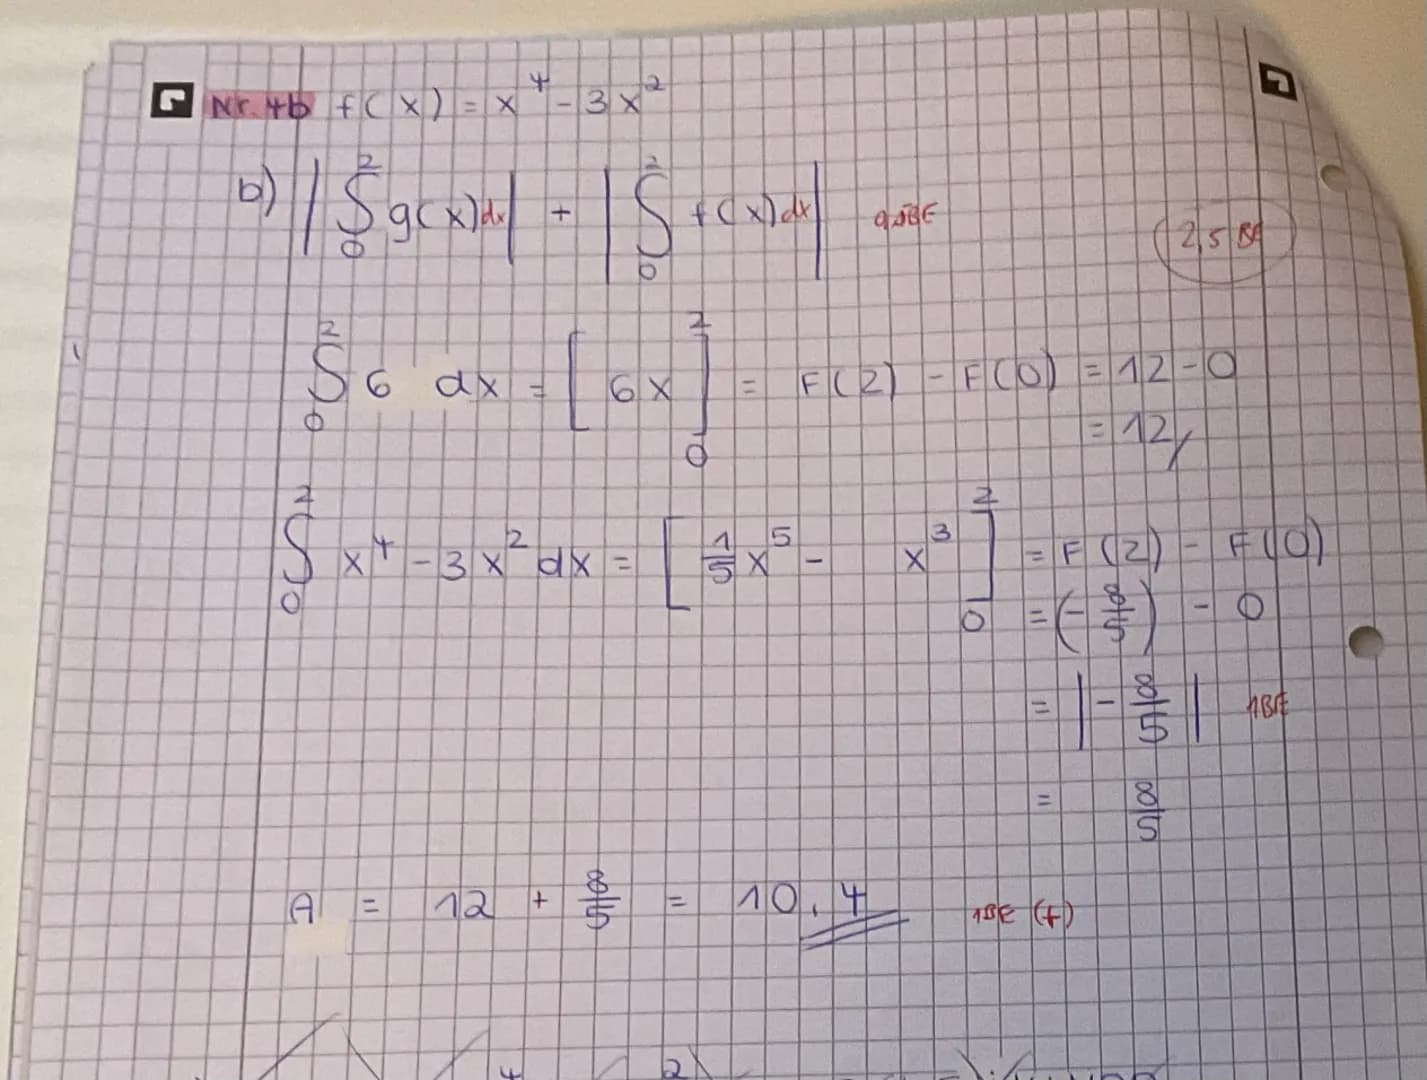 Nr. 4b f(x) = x⁴ - 3x²
b) |∫₀² g(x)dx| + |∫₀² f(x)dx| 0,5BE
2,5 BE
∫₀² 6 dx = [6x]₀² = F(2) - F(0) = 12 - 0
= 12
∫₀² x⁴ - 3x² dx = [1/5 x⁵ - x³]₀² = F(2) - F(0)
= (-8/5) - 0
= |-8/5| 1BE
= 8/5
A = 12 + 8/5 = 10,4 1BE (f)